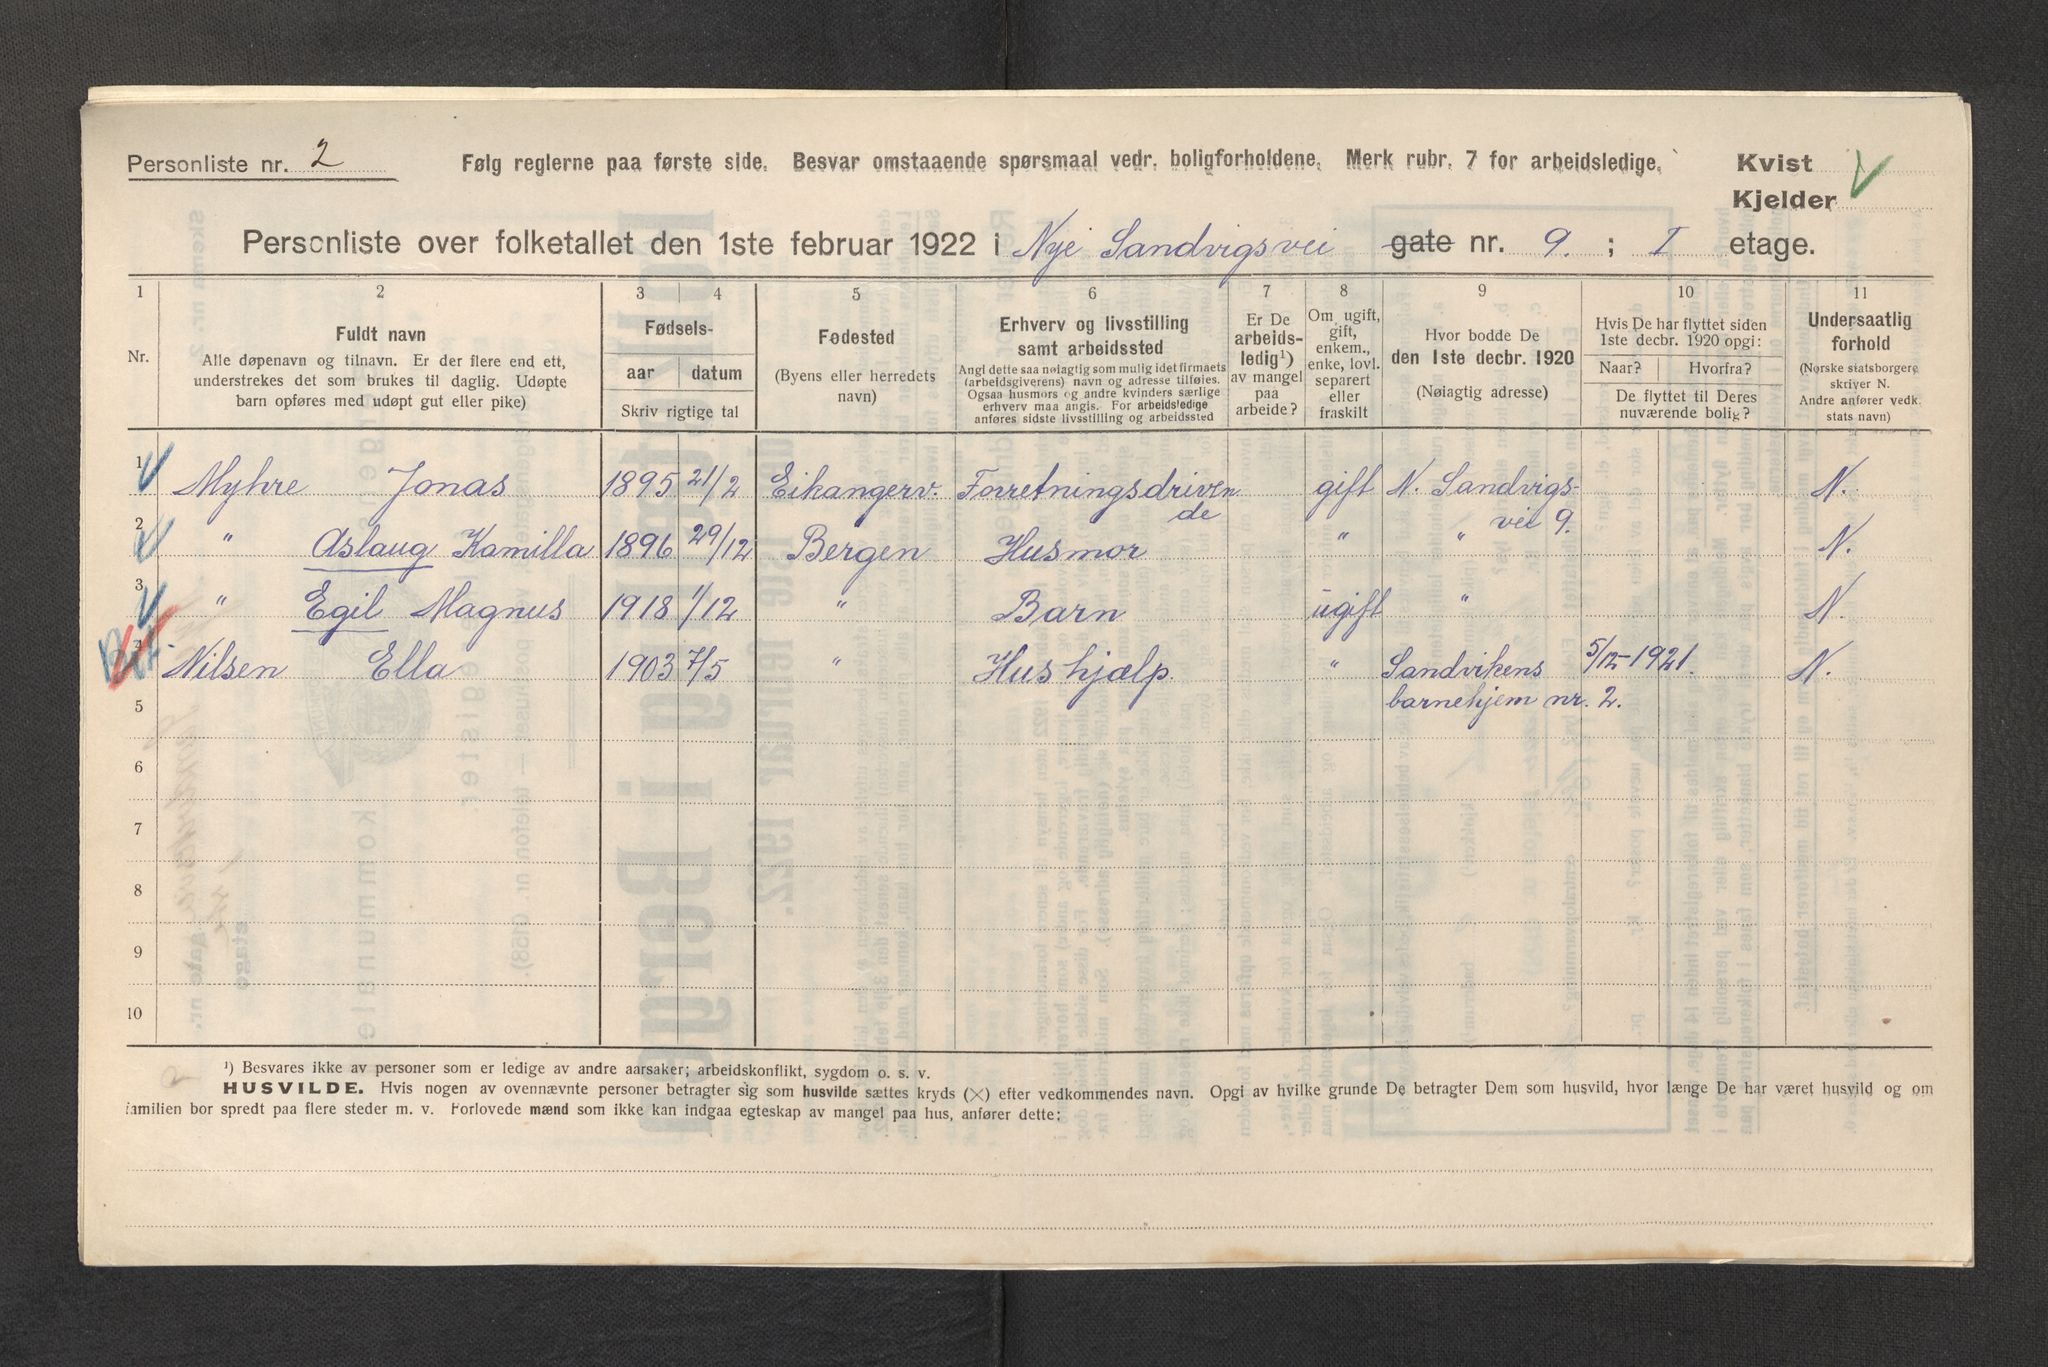 Personliste nr. 2 Følg reglerne paa første side. Besvar omstaaende spørsmaal vedr. boligforholdene. Merk rubr. 7 for arbeidsledige. Kvist
Kjelder
Personliste over folketallet den 1ste februar 1922 i Nye Sandvigsvei gate nr. 9. ; I etage.
1 2 3 4 5 6 7 8 9 10 11
Nr.
Fuldt navn
Alle døpenavn og tilnavn. Er der flere end ett,
understrekes det som brukes til daglig. Udøpte
barn opføres med udøpt gut eller pike)
Fødsels-
aar datum
Skriv rigtige tal
Fødested
(Byens eller herredets
navn)
Erhverv og livsstilling
samt arbeidssted
Angi dette saa nøiagtig som mulig idet firmaets
(arbeidsgiverens) navn og adresse tilføies.
Ogsaa husmors og andre kvinders særlige
erhverv maa angis. For arbeidsledige
anføres sidste livsstilling og arbeidssted
Er De
arbeids-
ledig¹)
av mangel
paa
arbeide?
Om ugift,
gift,
enkem.,
enke, lovl.
separert
eller
fraskilt
Hvor bodde De
den 1ste decbr. 1920
(Nøiagtig adresse)
Hvis De har flyttet siden
1ste decbr. 1920 opgi:
Naar? Hvorfra?
De flyttet til Deres
nuværende bolig?
Undersaatlig
forhold
(Norske statsborgere
skriver N.
Andre anfører vedk.
stats navn)
1 Myhre Jonas 1895 21/2 Eikangerv. Forretningsdriven gift N. Sandvigs- N.
de vei 9.
2 " Aslaug Kamilla 1896 29/12 Bergen Husmor " " N.
3 " Egil Magnus 1918 1/12 " Barn ugift " N.
4 Nilsen Ella 1903 7/5 " Hushjælp " Sandvikens 5/12-1921. N.
5 barnehjem nr. 2.
6
7
8
9
10
¹) Besvares ikke av personer som er ledige av andre aarsaker; arbeidskonflikt, sygdom o. s. v.
HUSVILDE. Hvis nogen av ovennævnte personer betragter sig som husvilde sættes kryds (X) efter vedkommendes navn. Opgi av hvilke grunde De betragter Dem som husvild, hvor længe De har været husvild og om
familien bor spredt paa flere steder m. v. Forlovede mænd som ikke kan indgaa egteskap av mangel paa hus, anfører dette: